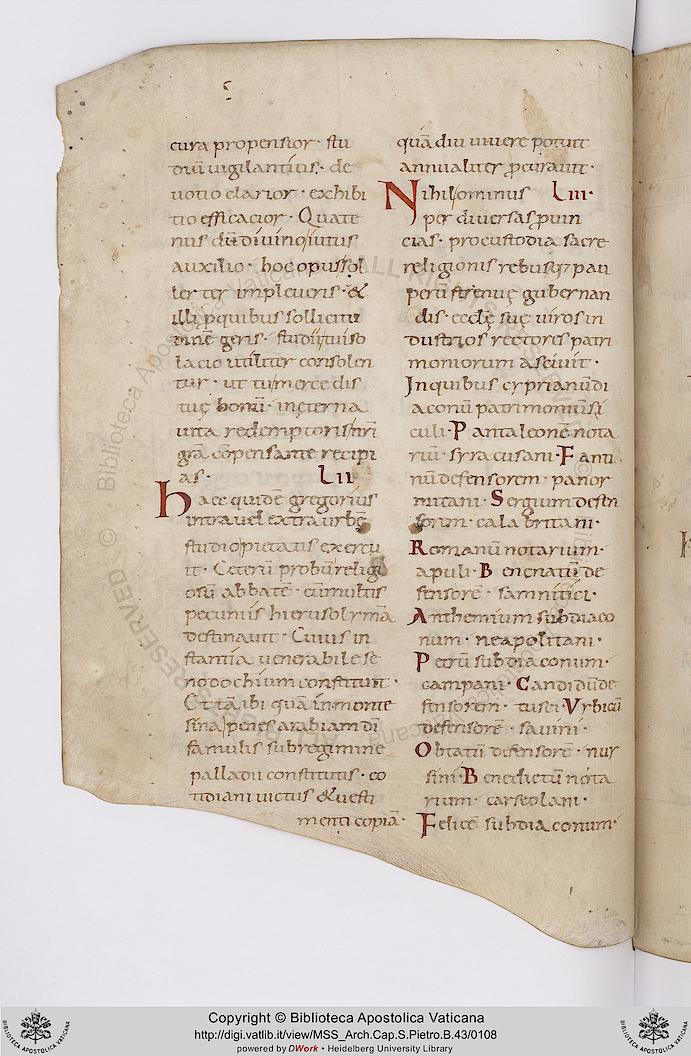 cura propensior · stu
diū uigilantius · de
uotio clarior · exhibi
tio efficacior · Quate
nus dū diuino iutus
auxilio · hoc opus sol
ler ter impleueris · &
illi p quibus sollicitu
dinē geris · studii tui so
lacio utiliter consolen
tur · ut tu mercedis
tuę bonū · in ęterna
uita redemptoris nr̄i
gr̄a cōpensante recipi
as · LII
Haec quidē gregorius
intra uel extra urbē
studio pietatis exercu
it · Ceterū probū religi
osū abbatē · cū multis
pecuniis hierusolymā
destinauit · Cuius in
stantia uenerabile se
nodochium constituit ·
Et tā ibi quā in monte
sina penes arabiam dī
famulis sub regimine
palladii constitutis · co
tidiani uictus & uesti
menti copiā ·
quādiu uiuere potuit
annualiter pcurauit ·
Nihilominus LIII ·
per diuersas puin
cias · pro custodia sacre
religionis rebusq; pau
perū strenue gubernan
dis · eccl̄e suę uiros in
dustrios rectores patri
moniorum asciuit ·
In quibus cyprianū di
aconū patrimonii si
culi · Pantaleonē nota
riū · syracusani · Fanti
nū defensorem · panor
mitani · Sergium defen
sorem · calabritani ·
Romanū notarium ·
apuli · Benenatū de
fensorē · samnitici ·
Anthemium subdiaco
num · neapolitani ·
Petrū subdiaconum ·
campani · Candidū de
fensorem · tusci · Vrbicū
defensorē · sauini ·
Obtatū defensorē · nur
sini · Benedictū nota
rium · carseolani ·
Felicē subdiaconum ·
Copyright © Biblioteca Apostolica Vaticana
http://digi.vatlib.it/view/MSS_Arch.Cap.S.Pietro.B.43/0108
powered by DWork · Heidelberg University Library